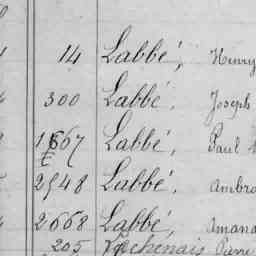 14 Labbé, Henry
300 Labbé, Joseph
1667 Labbé, Paul
2548 Labbé, Ambro
2668 Labbé, Amana
205 Pierre